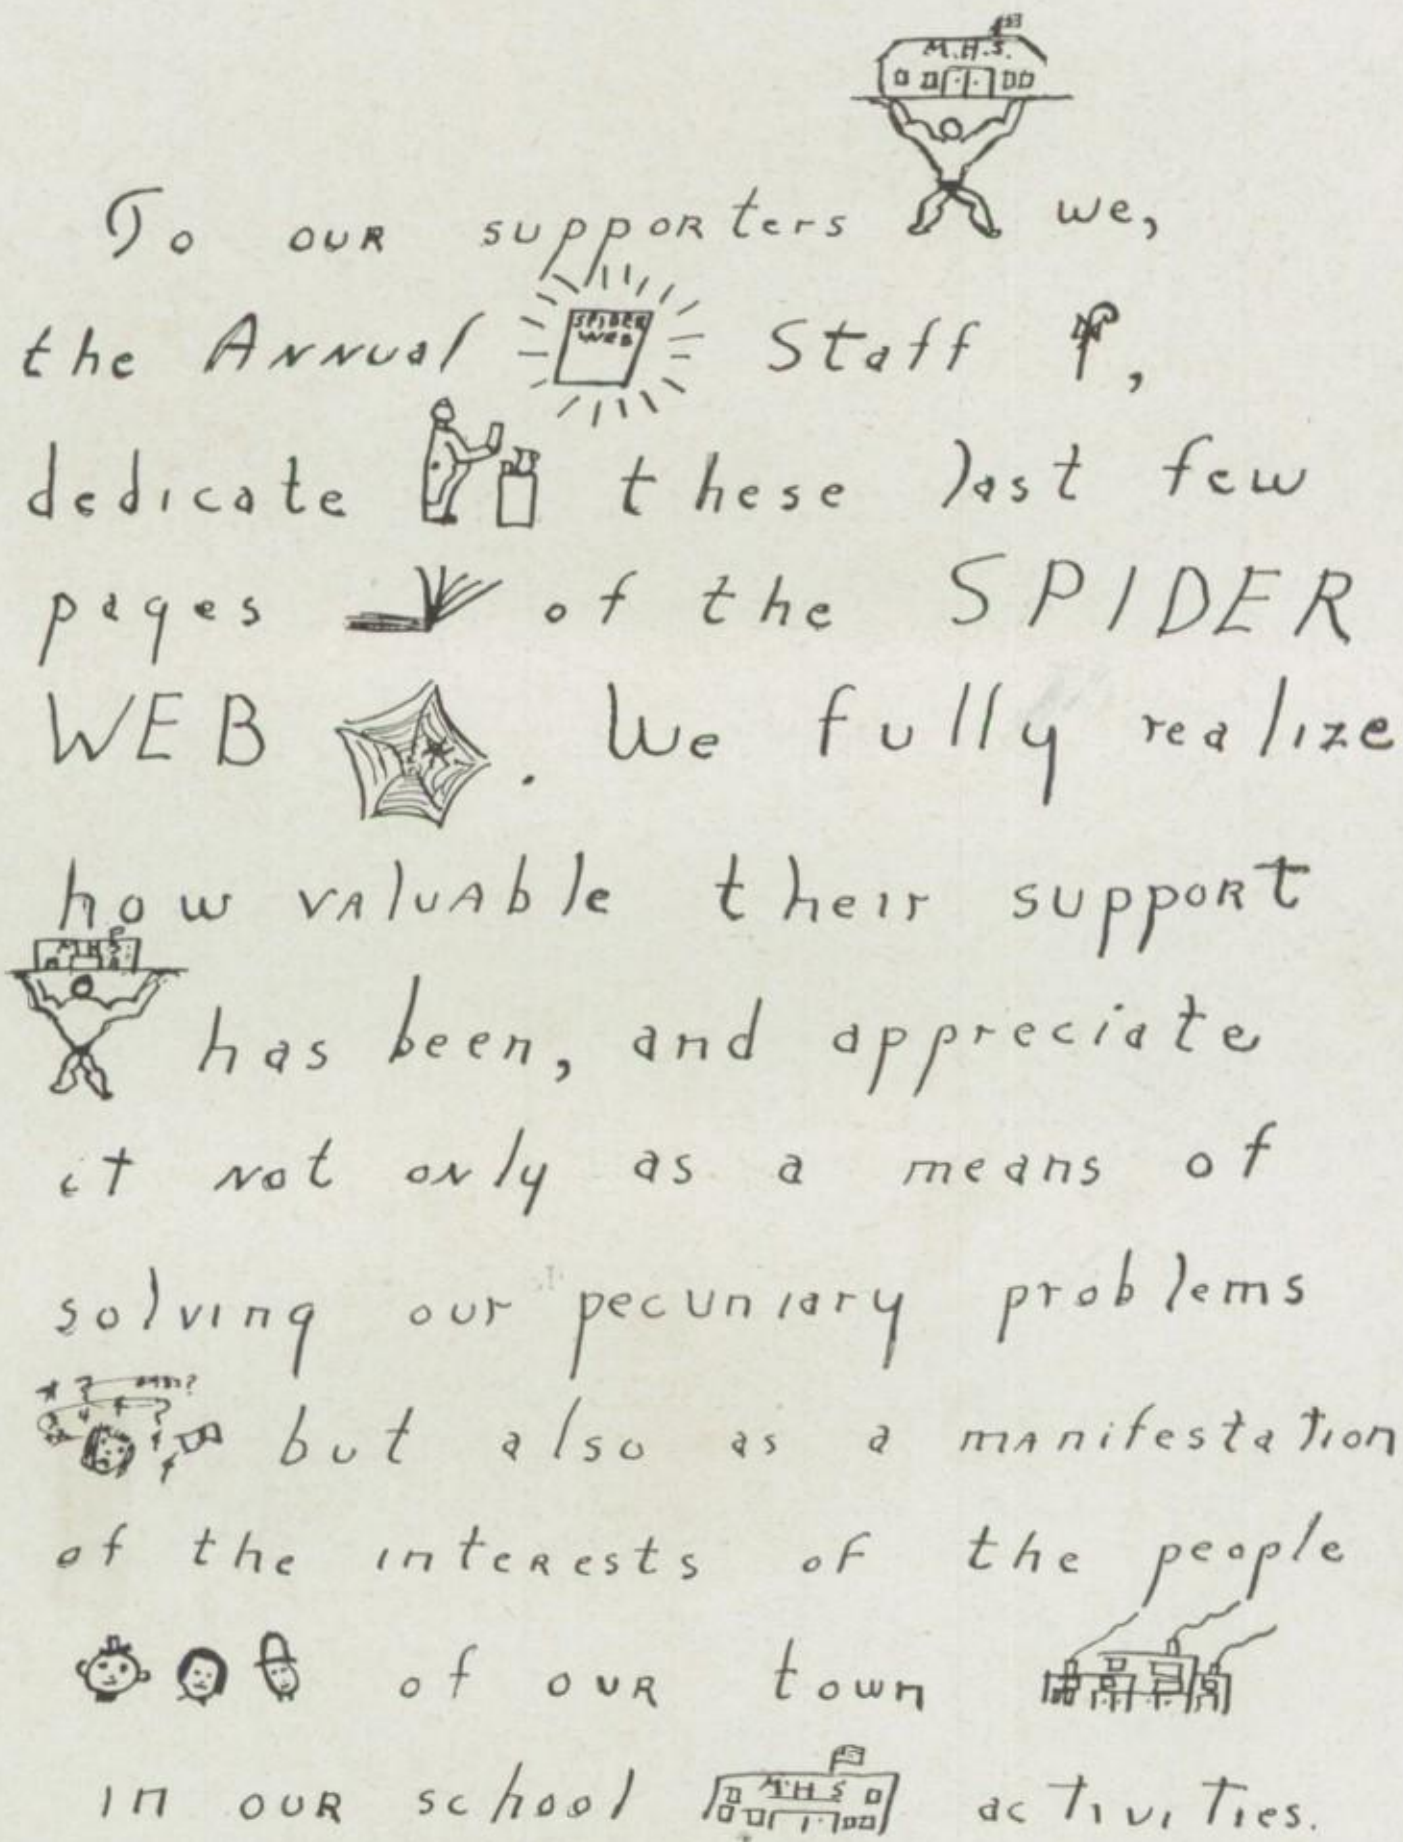 M.H.S.
To our supporters we,
the Annual SPIDER WEB Staff,
dedicate these last few
pages of the SPIDER
WEB. We fully realize
how valuable their support
M.H.S.
has been, and appreciate
it not only as a means of
solving our pecuniary problems
but also as a manifestation
of the interests of the people
of our town
in our school M.H.S activities.